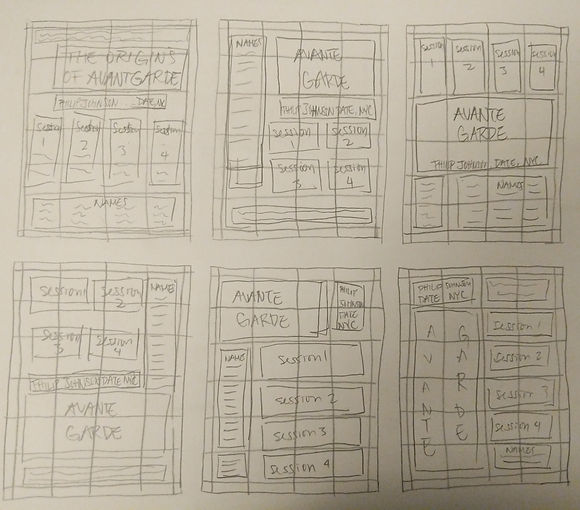 THE ORIGINS
OF AVANTGARDE
PHILIP JOHNSON DATE, NYC
Session
1
Session
2
Session
3
Session
4
NAMES
NAMES
AVANTE
GARDE
PHILIP JOHNSON DATE, NYC
Session
1
Session
2
Session
3
Session
4
Session
1
Session
2
Session
3
Session
4
AVANTE
GARDE
PHILIP JOHNSON, DATE, NYC
NAMES
Session 1
Session
2
NAMES
Session
3
Session
4
PHILIP JOHNSON DATE NYC
AVANTE
GARDE
AVANTE
GARDE
PHILIP
JOHNSON
DATE
NYC
NAMES
Session 1
Session 2
Session 3
Session 4
PHILIP JOHNSON
DATE NYC
AVANTE
GARDE
Session 1
Session 2
Session 3
Session 4
NAMES